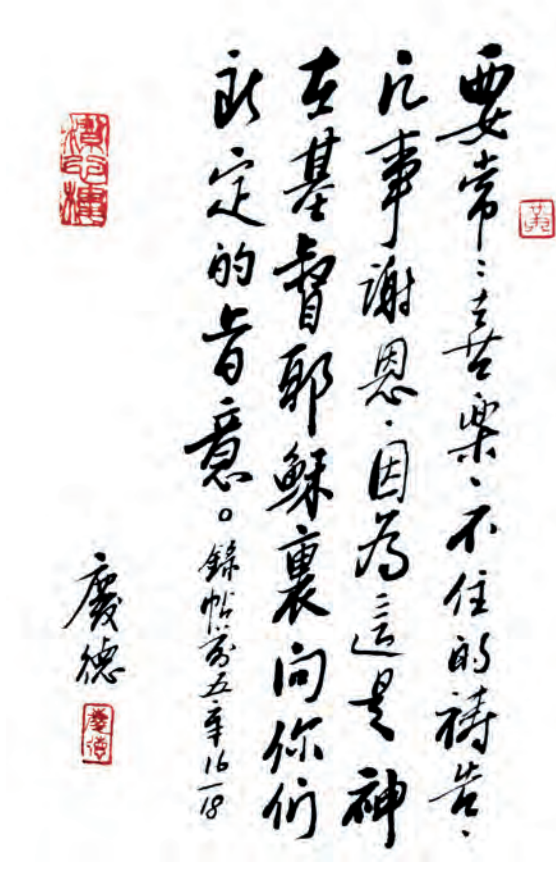 要常：喜樂、不住的禱告、
凡事謝恩、因為這是神
在基督耶穌裏向你們
所定的旨意。
錄帖前五章16—18
慶德
慶德